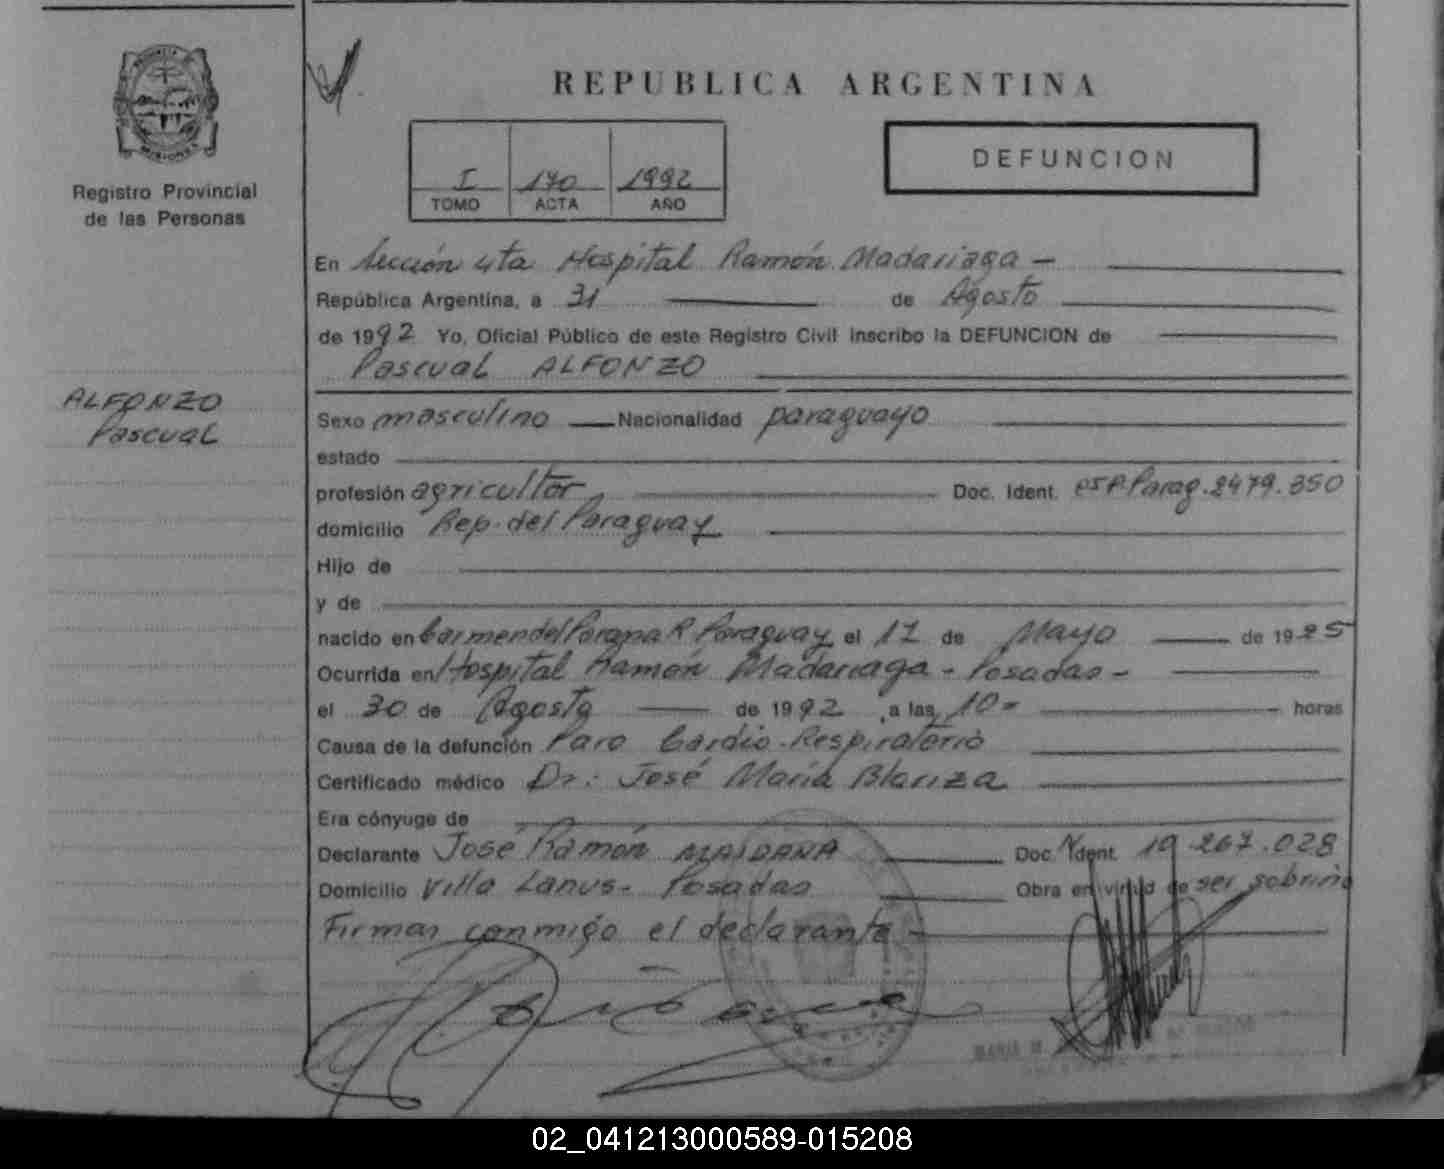 PROVINCIA
MISIONES
Registro Provincial
de las Personas
REPUBLICA ARGENTINA
I 170 1992
TOMO ACTA AÑO
DEFUNCION
En Sección 4ta Hospital Ramón Madariaga -
República Argentina, a 31 de Agosto
de 1992 Yo, Oficial Público de este Registro Civil inscribo la DEFUNCION de
Pascual ALFONZO
ALFONZO
Pascual
Sexo masculino Nacionalidad paraguayo
estado
profesión agricultor Doc. Ident. Parag. 2479.350
domicilio Rep. del Paraguay
Hijo de
y de
nacido en Carmen del Parana R. Paraguay el 17 de Mayo de 1925
Ocurrida en Hospital Ramón Madariaga - Posadas -
el 30 de Agosto de 1992, a las 10 = horas
Causa de la defunción Paro Cardio-Respiratorio
Certificado médico Dr.: José María Blariza
Era cónyuge de
Declarante José Ramón MAIDANA Doc. Ident. 10.267.028
Domicilio Villa Lanus - Posadas Obra en virtud de ser sobrino
Firman conmigo el declarante
MARIA
02_041213000589-015208